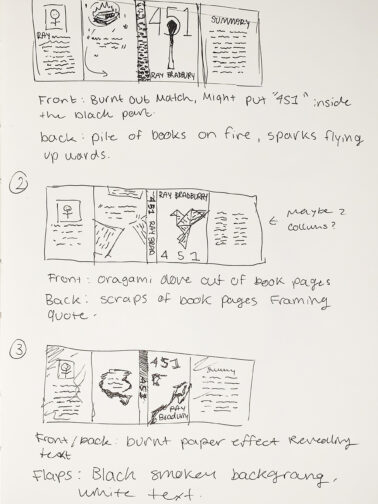 RAY
451
RAY BRADBURY
SUMMARY
Front: Burnt out Match, Might put "451" inside
the black part.
back: pile of books on fire, sparks flying
up wards.
2
451 RAY
RAY BRADBURY
451
← Maybe 2
Front: oragami dove out of book pages
Back: scraps of book pages Framing
quote.
3
451
451
RAY
Bradbury
Front/back: burnt paper effect Revealing
text
Flaps: Black smokey
white text.